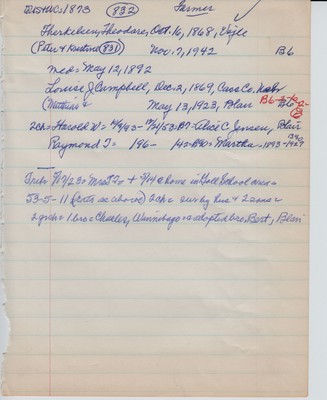 1873 832 Farmer ✓
Therkelsen, Theodore, Oct. 16, 1868, Vejle
(Peter & Kirstine (831) Nov. 7, 1942 B6
med = May 12, 1892
Louise J Campbell, Dec. 2, 1869, Cass Co. Nebr
(Matthias & May 13, 1923, Blair B6
2ch = Harold W = 4/9/93 - Alice C Jensen, Blair
Raymond T = 196 - Martha - 1893 - 1967
Trib = 5/17/23 = Mrs T. + 5/14 @ home in School area =
53-5-11 (as above) 2ch = sur by hus + 2 sons =
1 bro = Charles, Winnebago = adopted bro, Bert, Blair